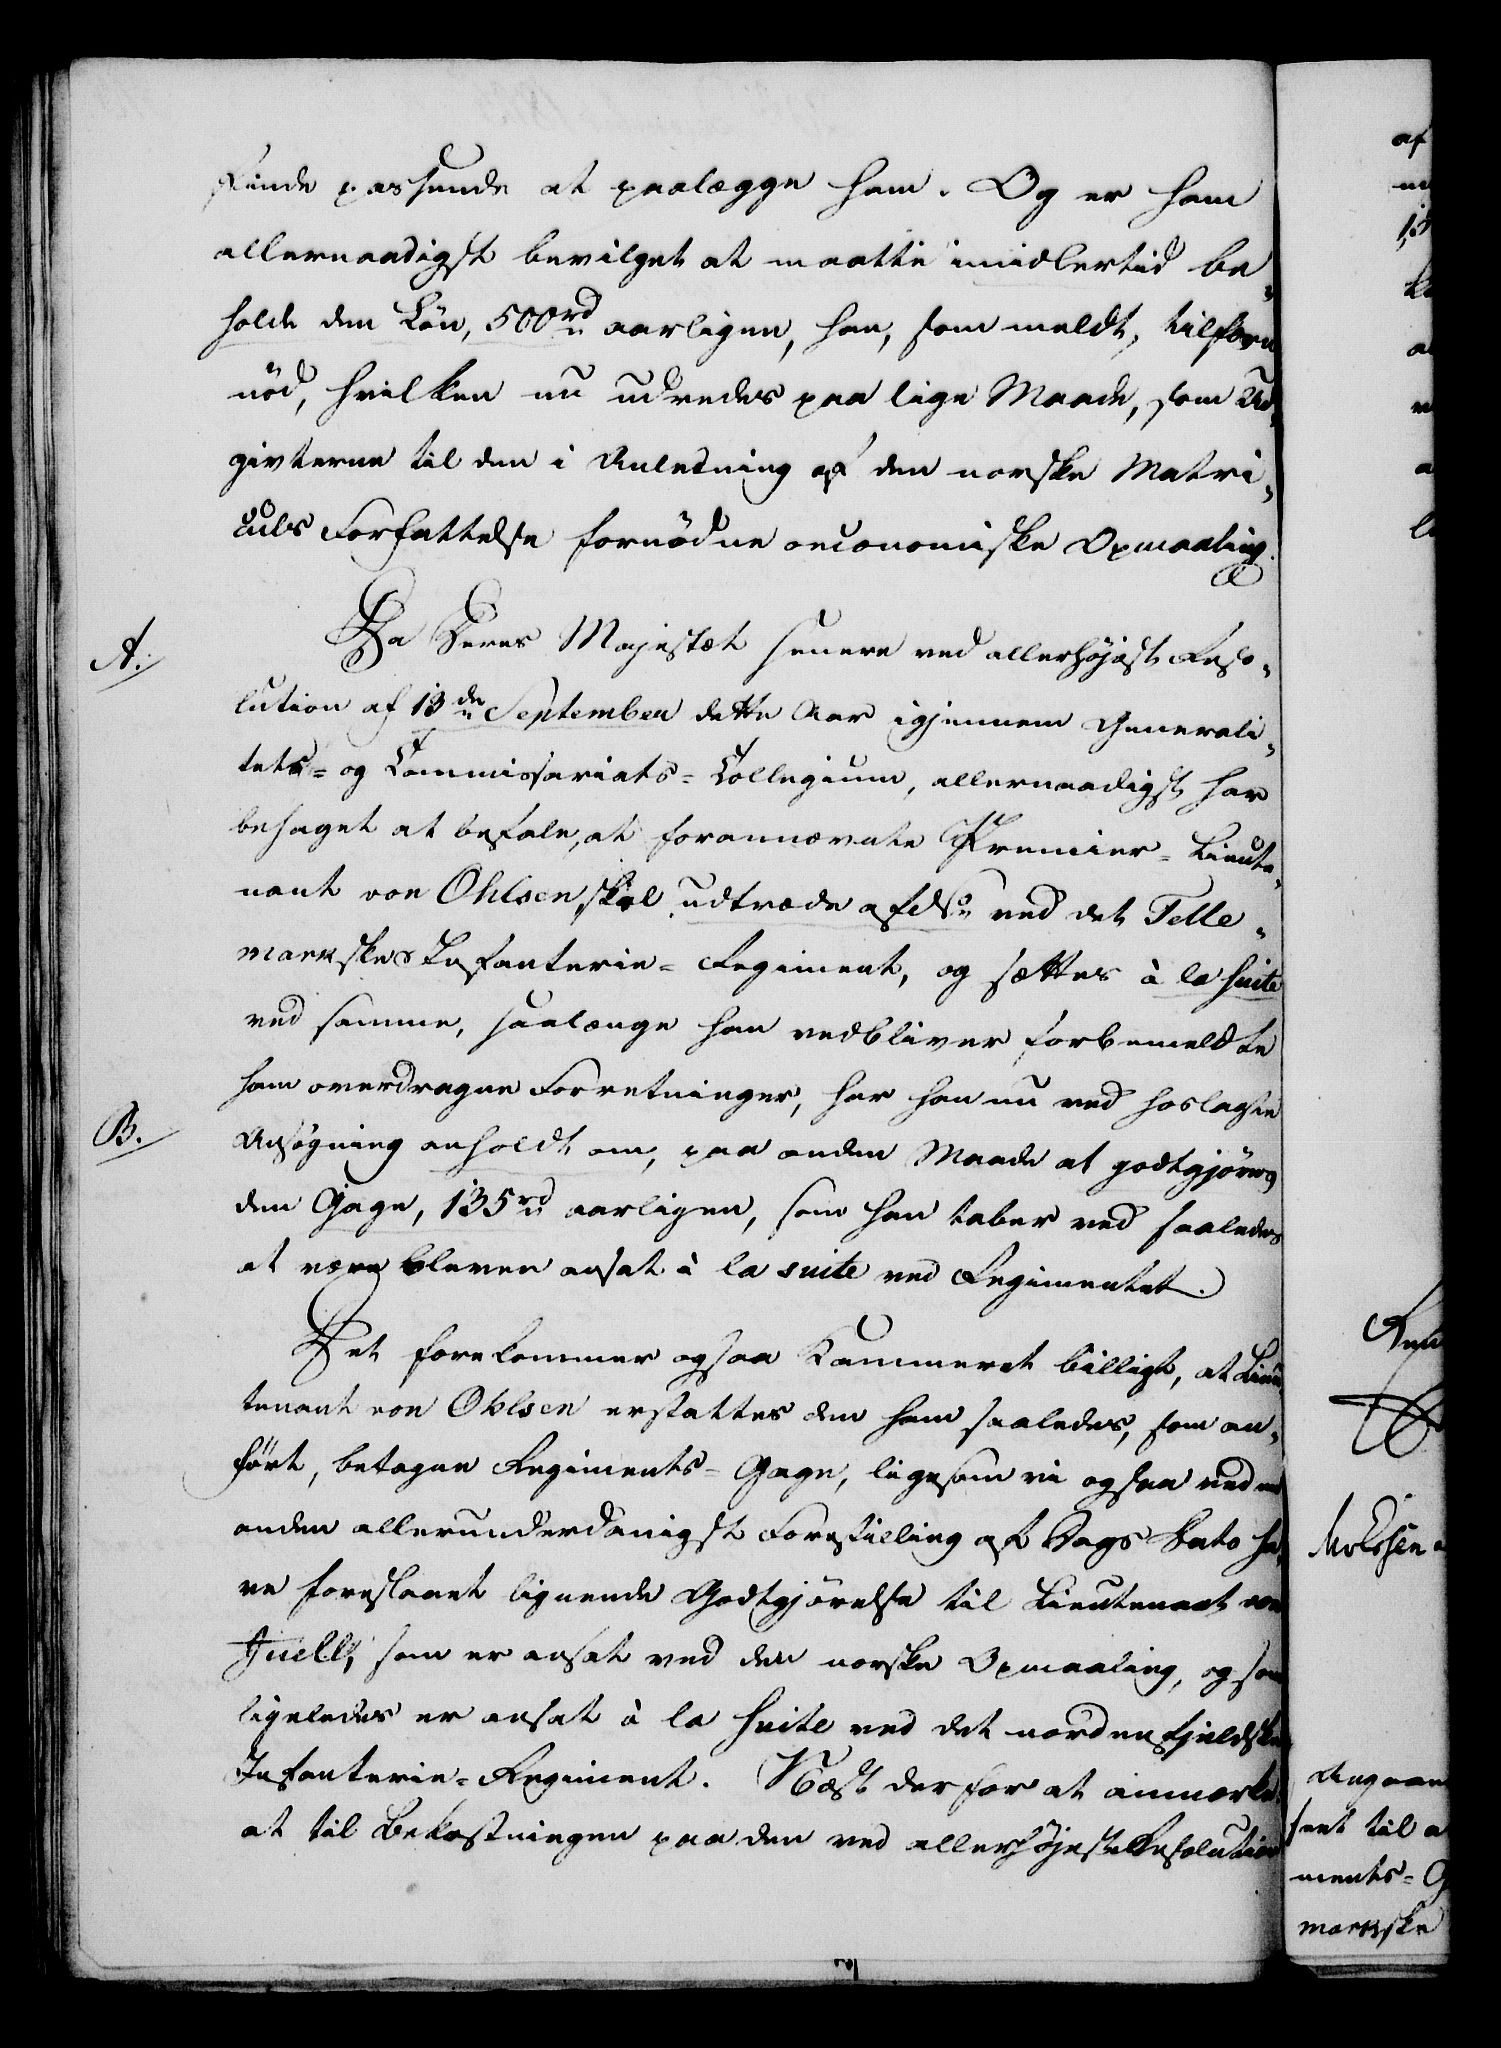 finde passende at paalægge ham. Og er ham
allernaadigst bevilget at maatte imidlertid be-
holde den Løn, 500 rd aarligen, han, som meldt, tilforn
nød, hvilken nu udredes paa lige Maade, som Ud-
givterne til den i Anledning af den norske Matri-
culs Forfattelse fornødne oeconomiske Opmaaling.
A.
Da Deres Majestæt senere ved allerhøjest Reso-
lution af 13de September dette Aar igjennem Generali-
tets- og Commissariats-Collegium, allernaadigst har
behaget at befale, at forannævnte Premier-Lieute-
nant von Ohlsen skal udtræde af ved det Telle-
markske Infanterie-Regiment, og sættes à la suite
ved samme, saalænge han vedbliver forbemeldte
ham overdragne Forretninger, har han nu ved hoslagde
B.
Ansøgning anholdt om, paa anden Maade at godtgjøres
den Gage, 135 rd aarligen, som han taber ved saaledes
at være bleven ansat à la suite ved Regimentet.
Det forekommer ogsaa Kammeret billigt, at Lieu-
tenant von Ohlsen erstattes den ham saaledes, som an-
ført, betagne Regiments-Gage, ligesom vi ogsaa ved en
anden allerunderdanigst Forestilling af Dags Dato ha-
ve foreslaaet lignende Godtgjørelse til Lieutenant von
Juell, som er ansat ved den norske Opmaaling, og som
ligeledes er ansat à la suite ved det nordenfjeldske
Infanterie-Regiment. Næst derfor at anmærke
at til Bekostningen paa den ved allerhøjeste Resolution
af
Angaaen
ments-G
markske